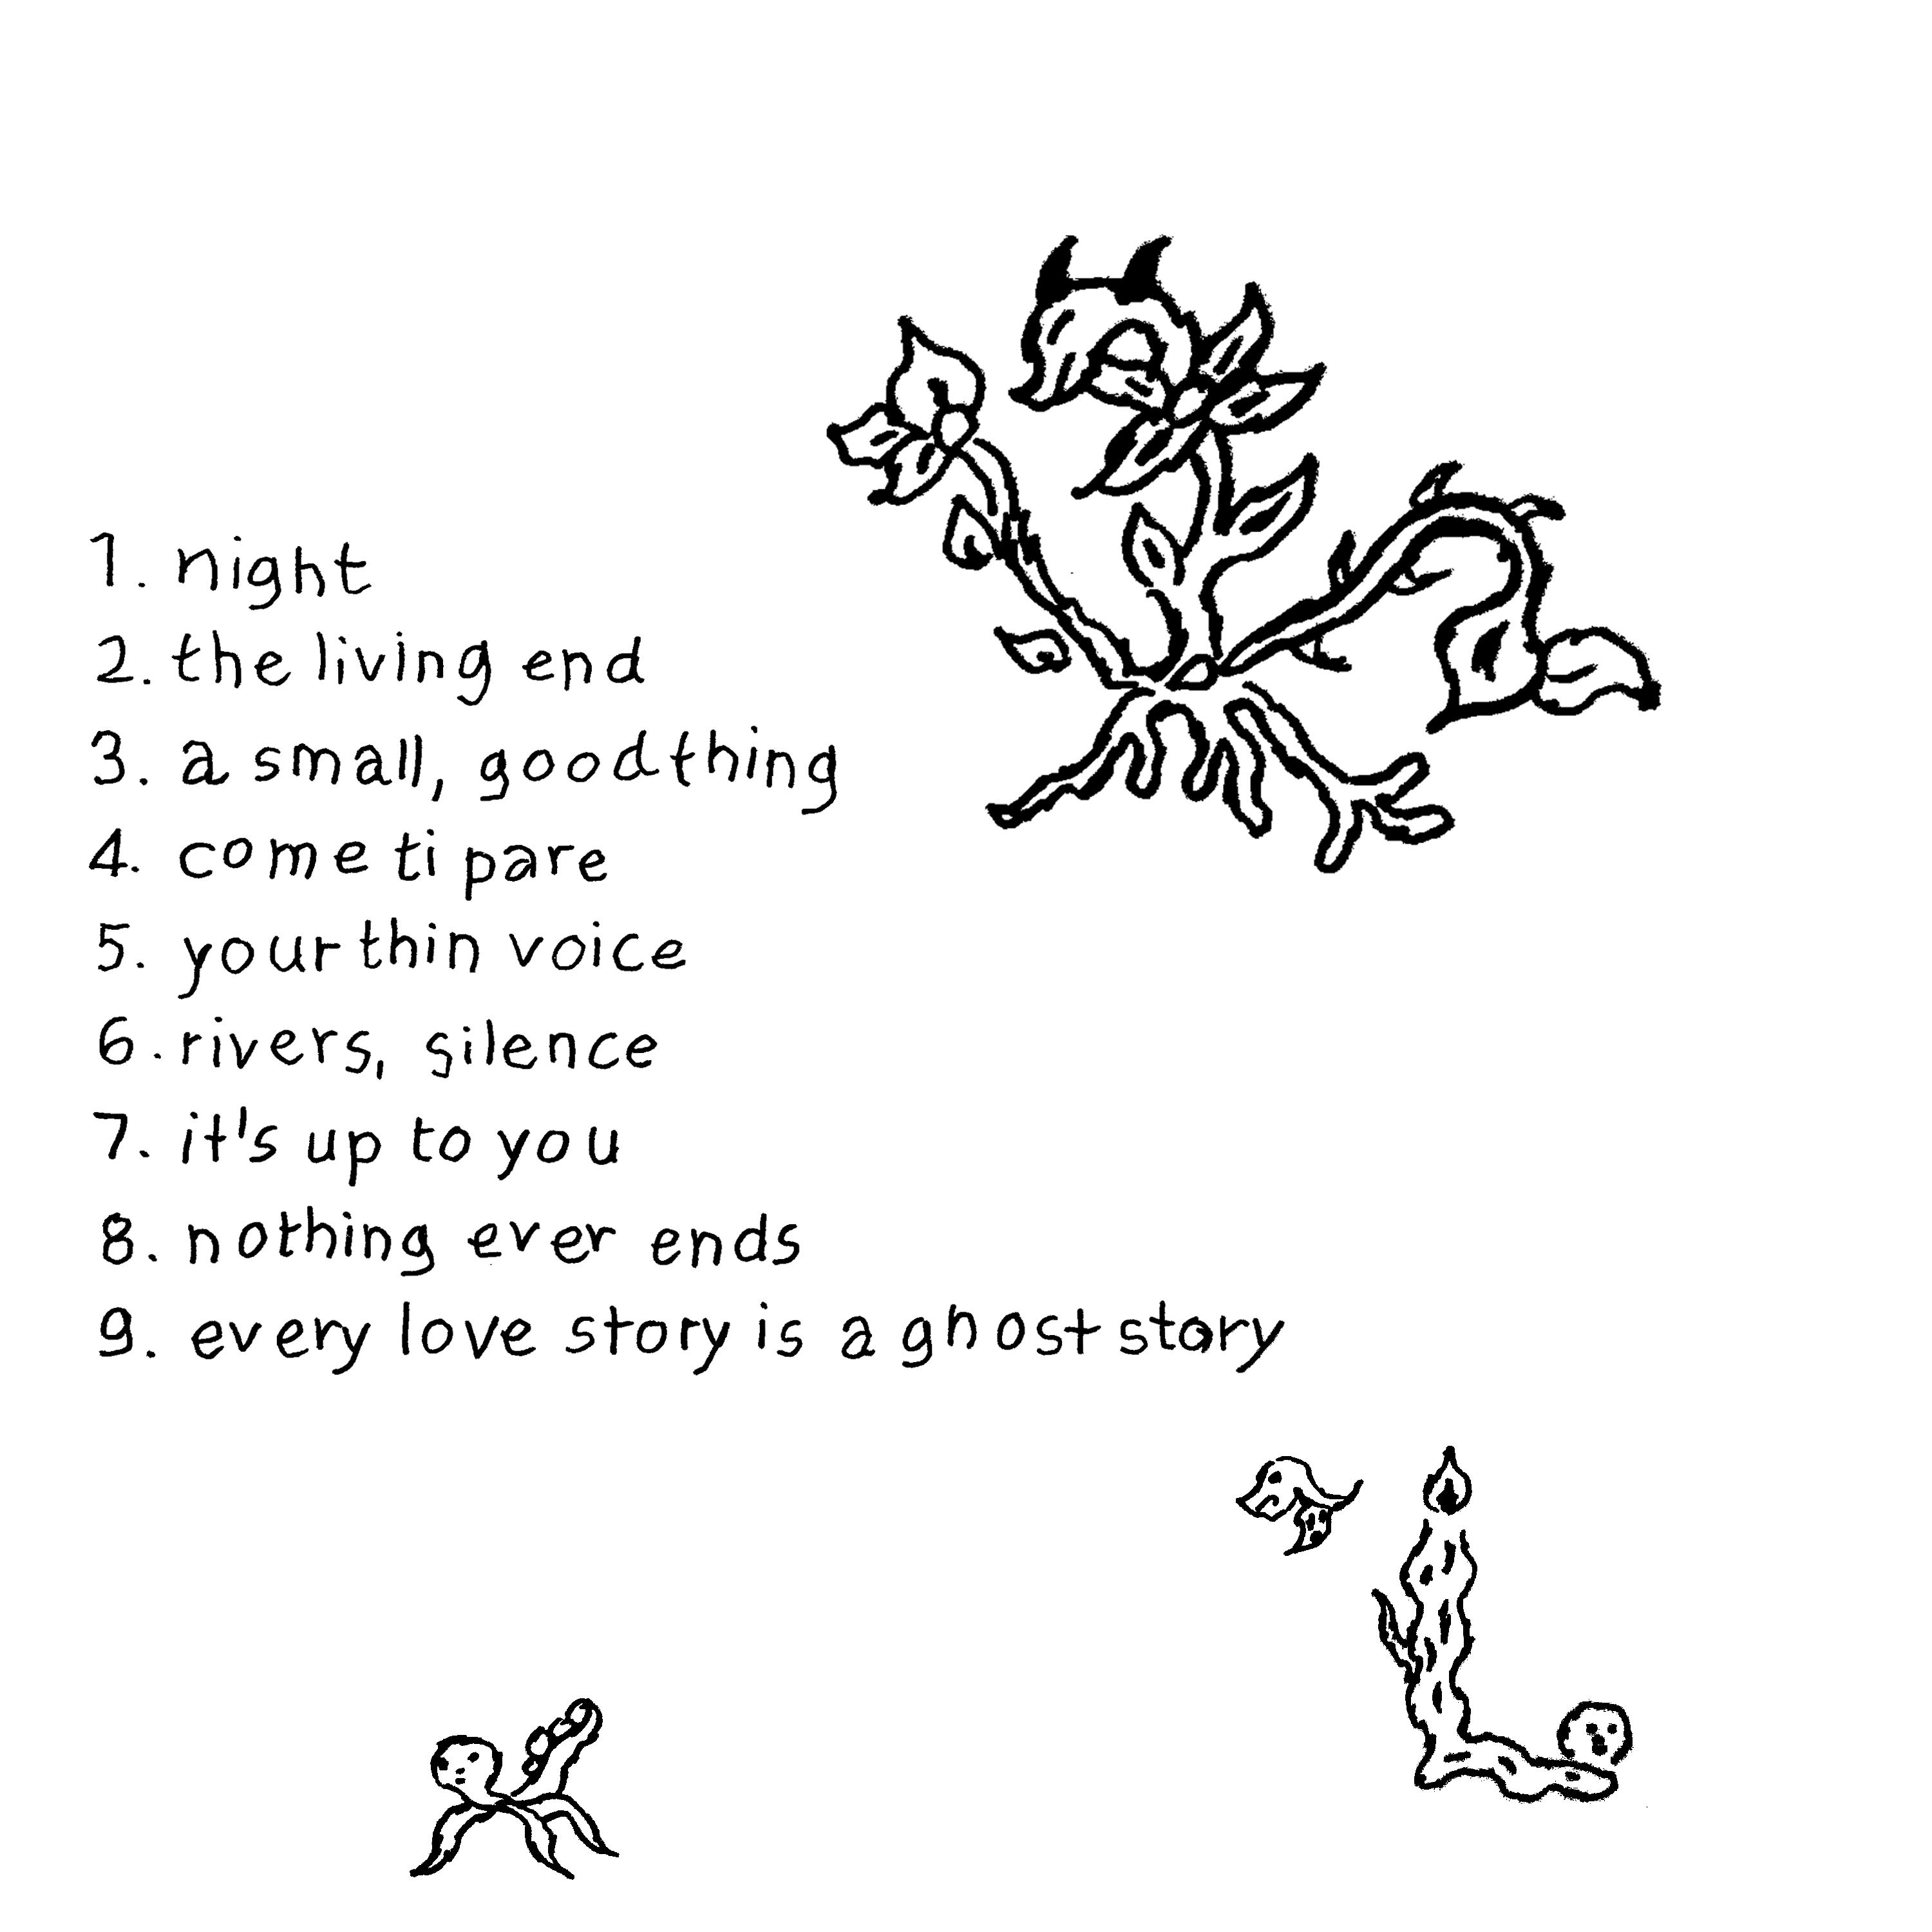 1. night
2. the living end
3. a small, good thing
4. come ti pare
5. your thin voice
6. rivers, silence
7. it's up to you
8. nothing ever ends
9. every love story is a ghost story